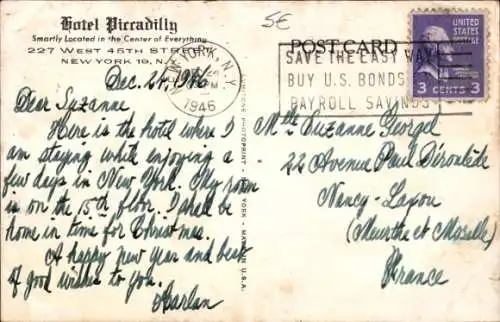 Hotel Piccadilly
Smartly Located in the Center of Everything
227 WEST 45TH STREET
NEW YORK 19, N.Y.
5€
POST CARD
NEW YORK, N.Y.
1946
SAVE THE EASY WAY
BUY U.S. BONDS
PAYROLL SAVINGS
UNITED
STATES
POSTAGE
3 CENTS 3
Dec. 24, 1946
Dear Suzanne
Here is the hotel where I
am staying while enjoying a
few days in New York. My room
is on the 15th floor. I shall be
home in time for Christmas.
A happy new year and best
of good wishes to you.
Harlan
Mlle Suzanne Georgel
22 Avenue Paul Déroulède
Nancy-Laxou
(Meurthe et Moselle)
France